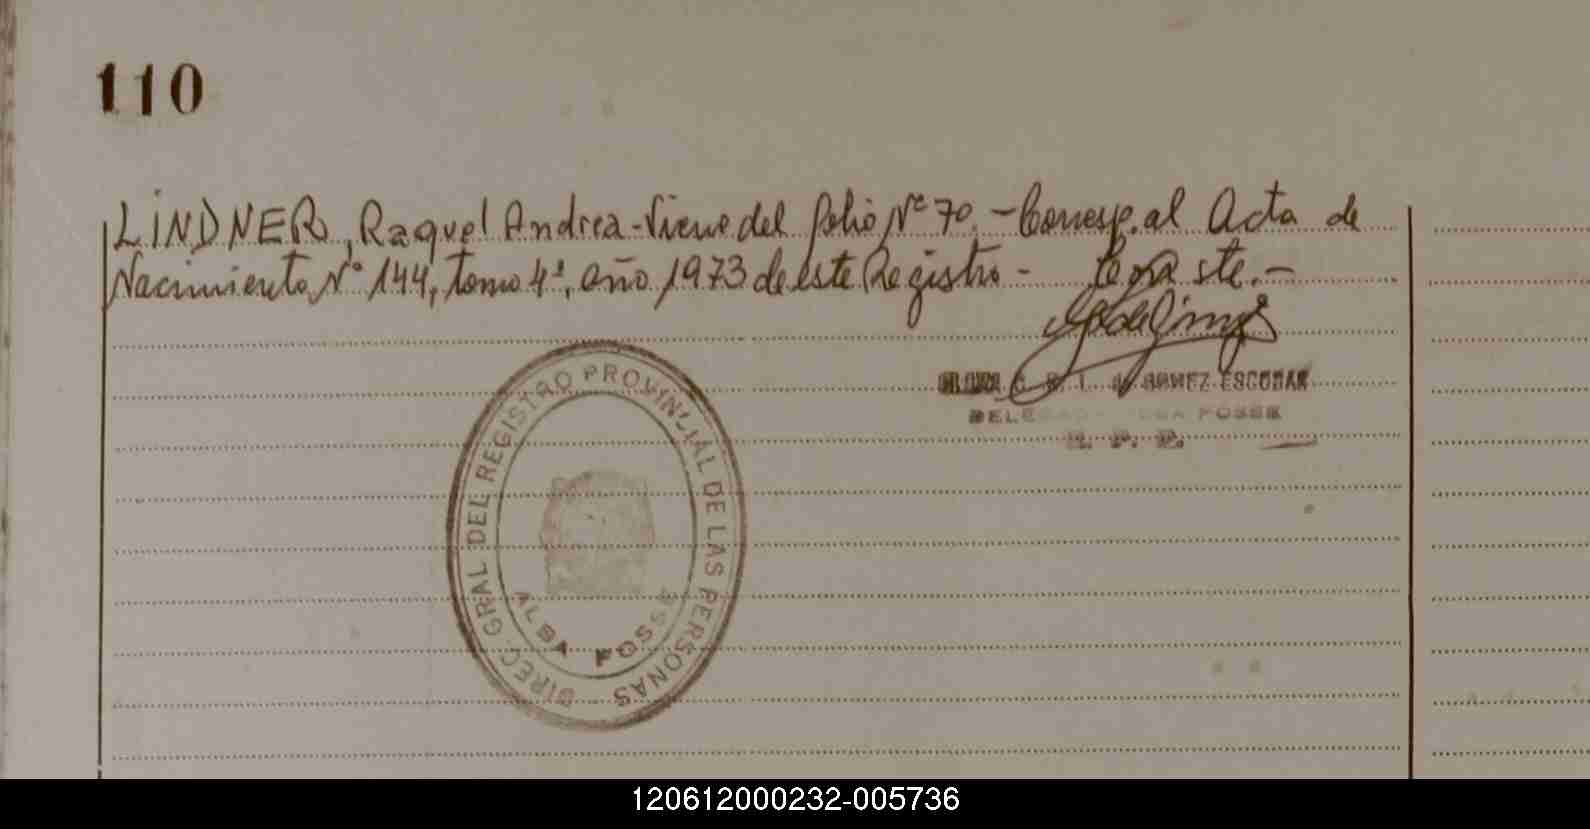 110
LINDNER, Raquel Andrea - Viene del folio Nº 70. - Corresp. al Acta de
Nacimiento Nº 144, tomo 4º, año 1973 de este Registro - Conste. -
GOMEZ ESCOBAR
POSSE
R. P. P.
DIREC. GRAL DEL REGISTRO PROVINCIAL DE LAS PERSONAS
ALBA POSSE
120612000232-005736